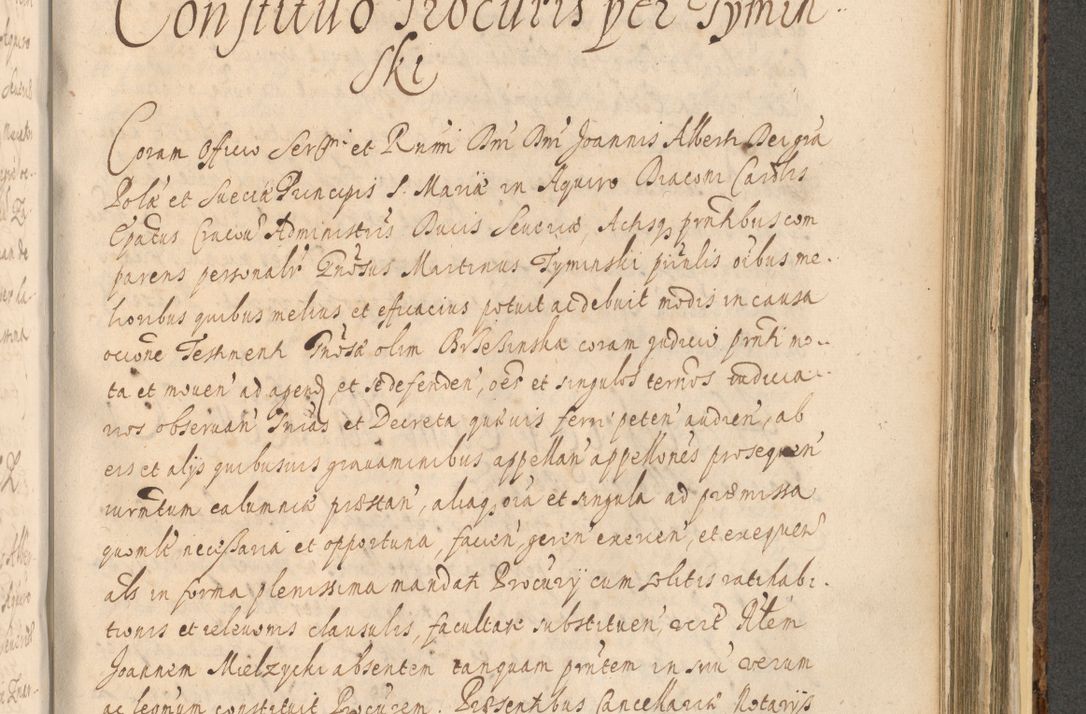 Constituo Procuris per Tymin
ski
Coram Officio Serssmi et Rndmi Dni Dni Joannis Alberti Dei gra
Polæ et Sueciæ Principis S. Mariæ in Aquiro Diaconi Cardlis
Epatus Cracou Administris Ducis Seueriæ, Actisq prntibus com
parens personalr Gnosus Martinus Tyminski prinlis oibus me
lioribus quibus melius et eficacius potuit ac debuit modis in causa
ocione Testamenti Gnosæ olim Brzezinska coram judicio prnti mo
ta et mouen ad agend, et ad defenden, oes et singulos termos iudicia
rios obseruan Snias et Decreta quæuis ferri peten audien, ab
eis et alijs quibusuis grauaminibus appellan appellones prosequen
iurmtum calumniæ præstan, aliaq oia et singula ad præmissa
quomlt necessaria et opportuna, facien geren exercen, et exequen
als in forma plenissima mandati Procurij cum solitis ratihabi
tionis et releuonis clausulis, facultate substituen, recit Nlem
Joannem Mielzycki absentem tanquam prntem in suu verum
ac legmum constituit Procurem. Præsentibus Cancellariæ Notarijs